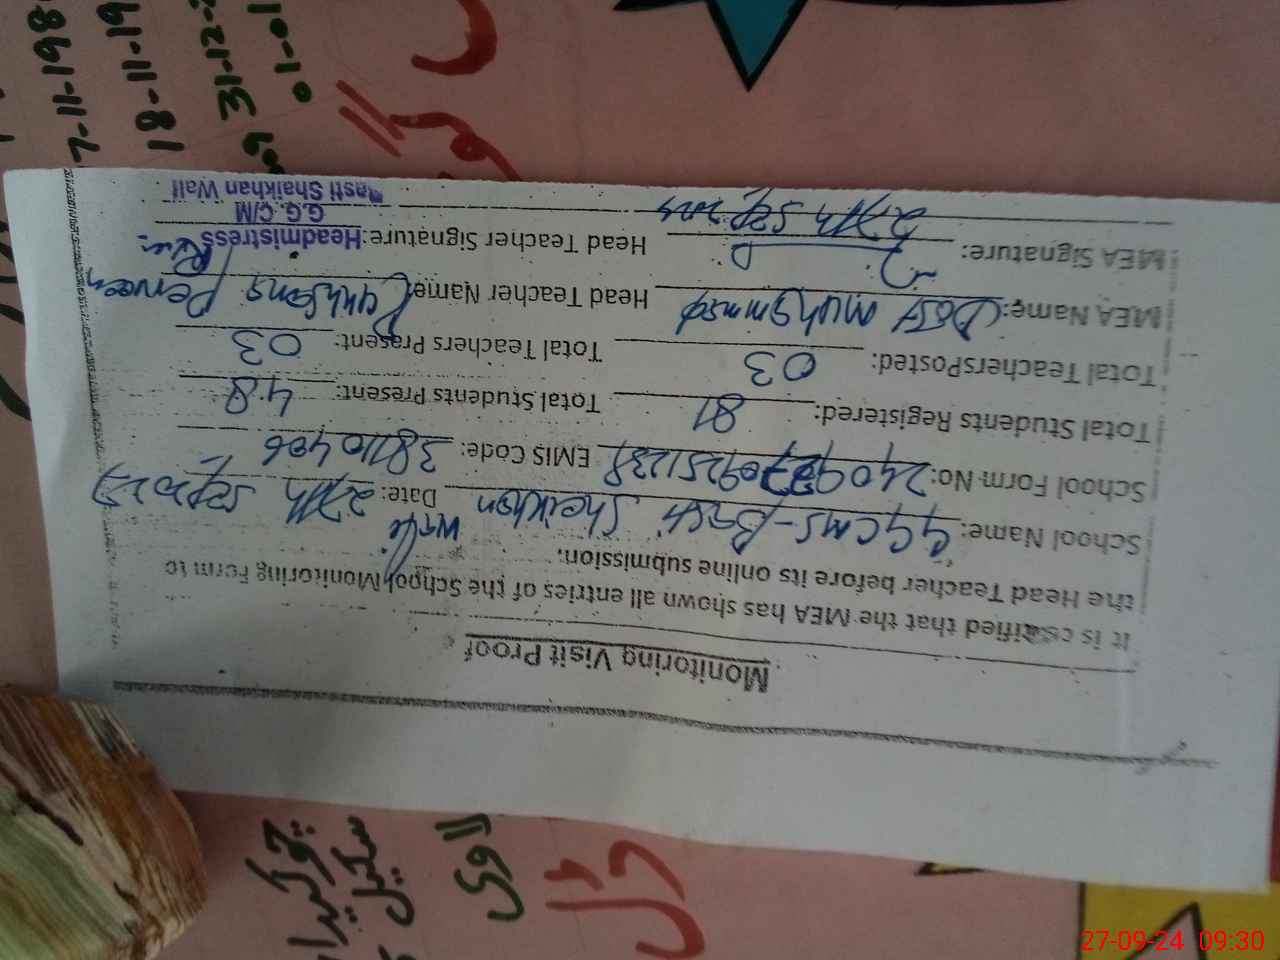 Monitoring Visit Proof
It is certified that the MEA has shown all entries of the School Monitoring Form to
the Head Teacher before its online submission.
School Name: GGCMS-Basti Sheikhan Wali Date: 27th Sep 2024
School Form No: EMIS Code: 38110406
Total Students Registered: 81 Total Students Present: 48
Total TeachersPosted: 03 Total Teachers Present: 03
MEA Name: Dost Muhammad Head Teacher Name: Rukhsana Perveen
MEA Signature: Head Teacher Signature: Headmistress
27th Sep 2024 G.G. C/M
Basti Shaikhan Wali
18-11-19
31-12-
01-01
چوکیدار
سکیل
لاوی
27-09-24 09:30